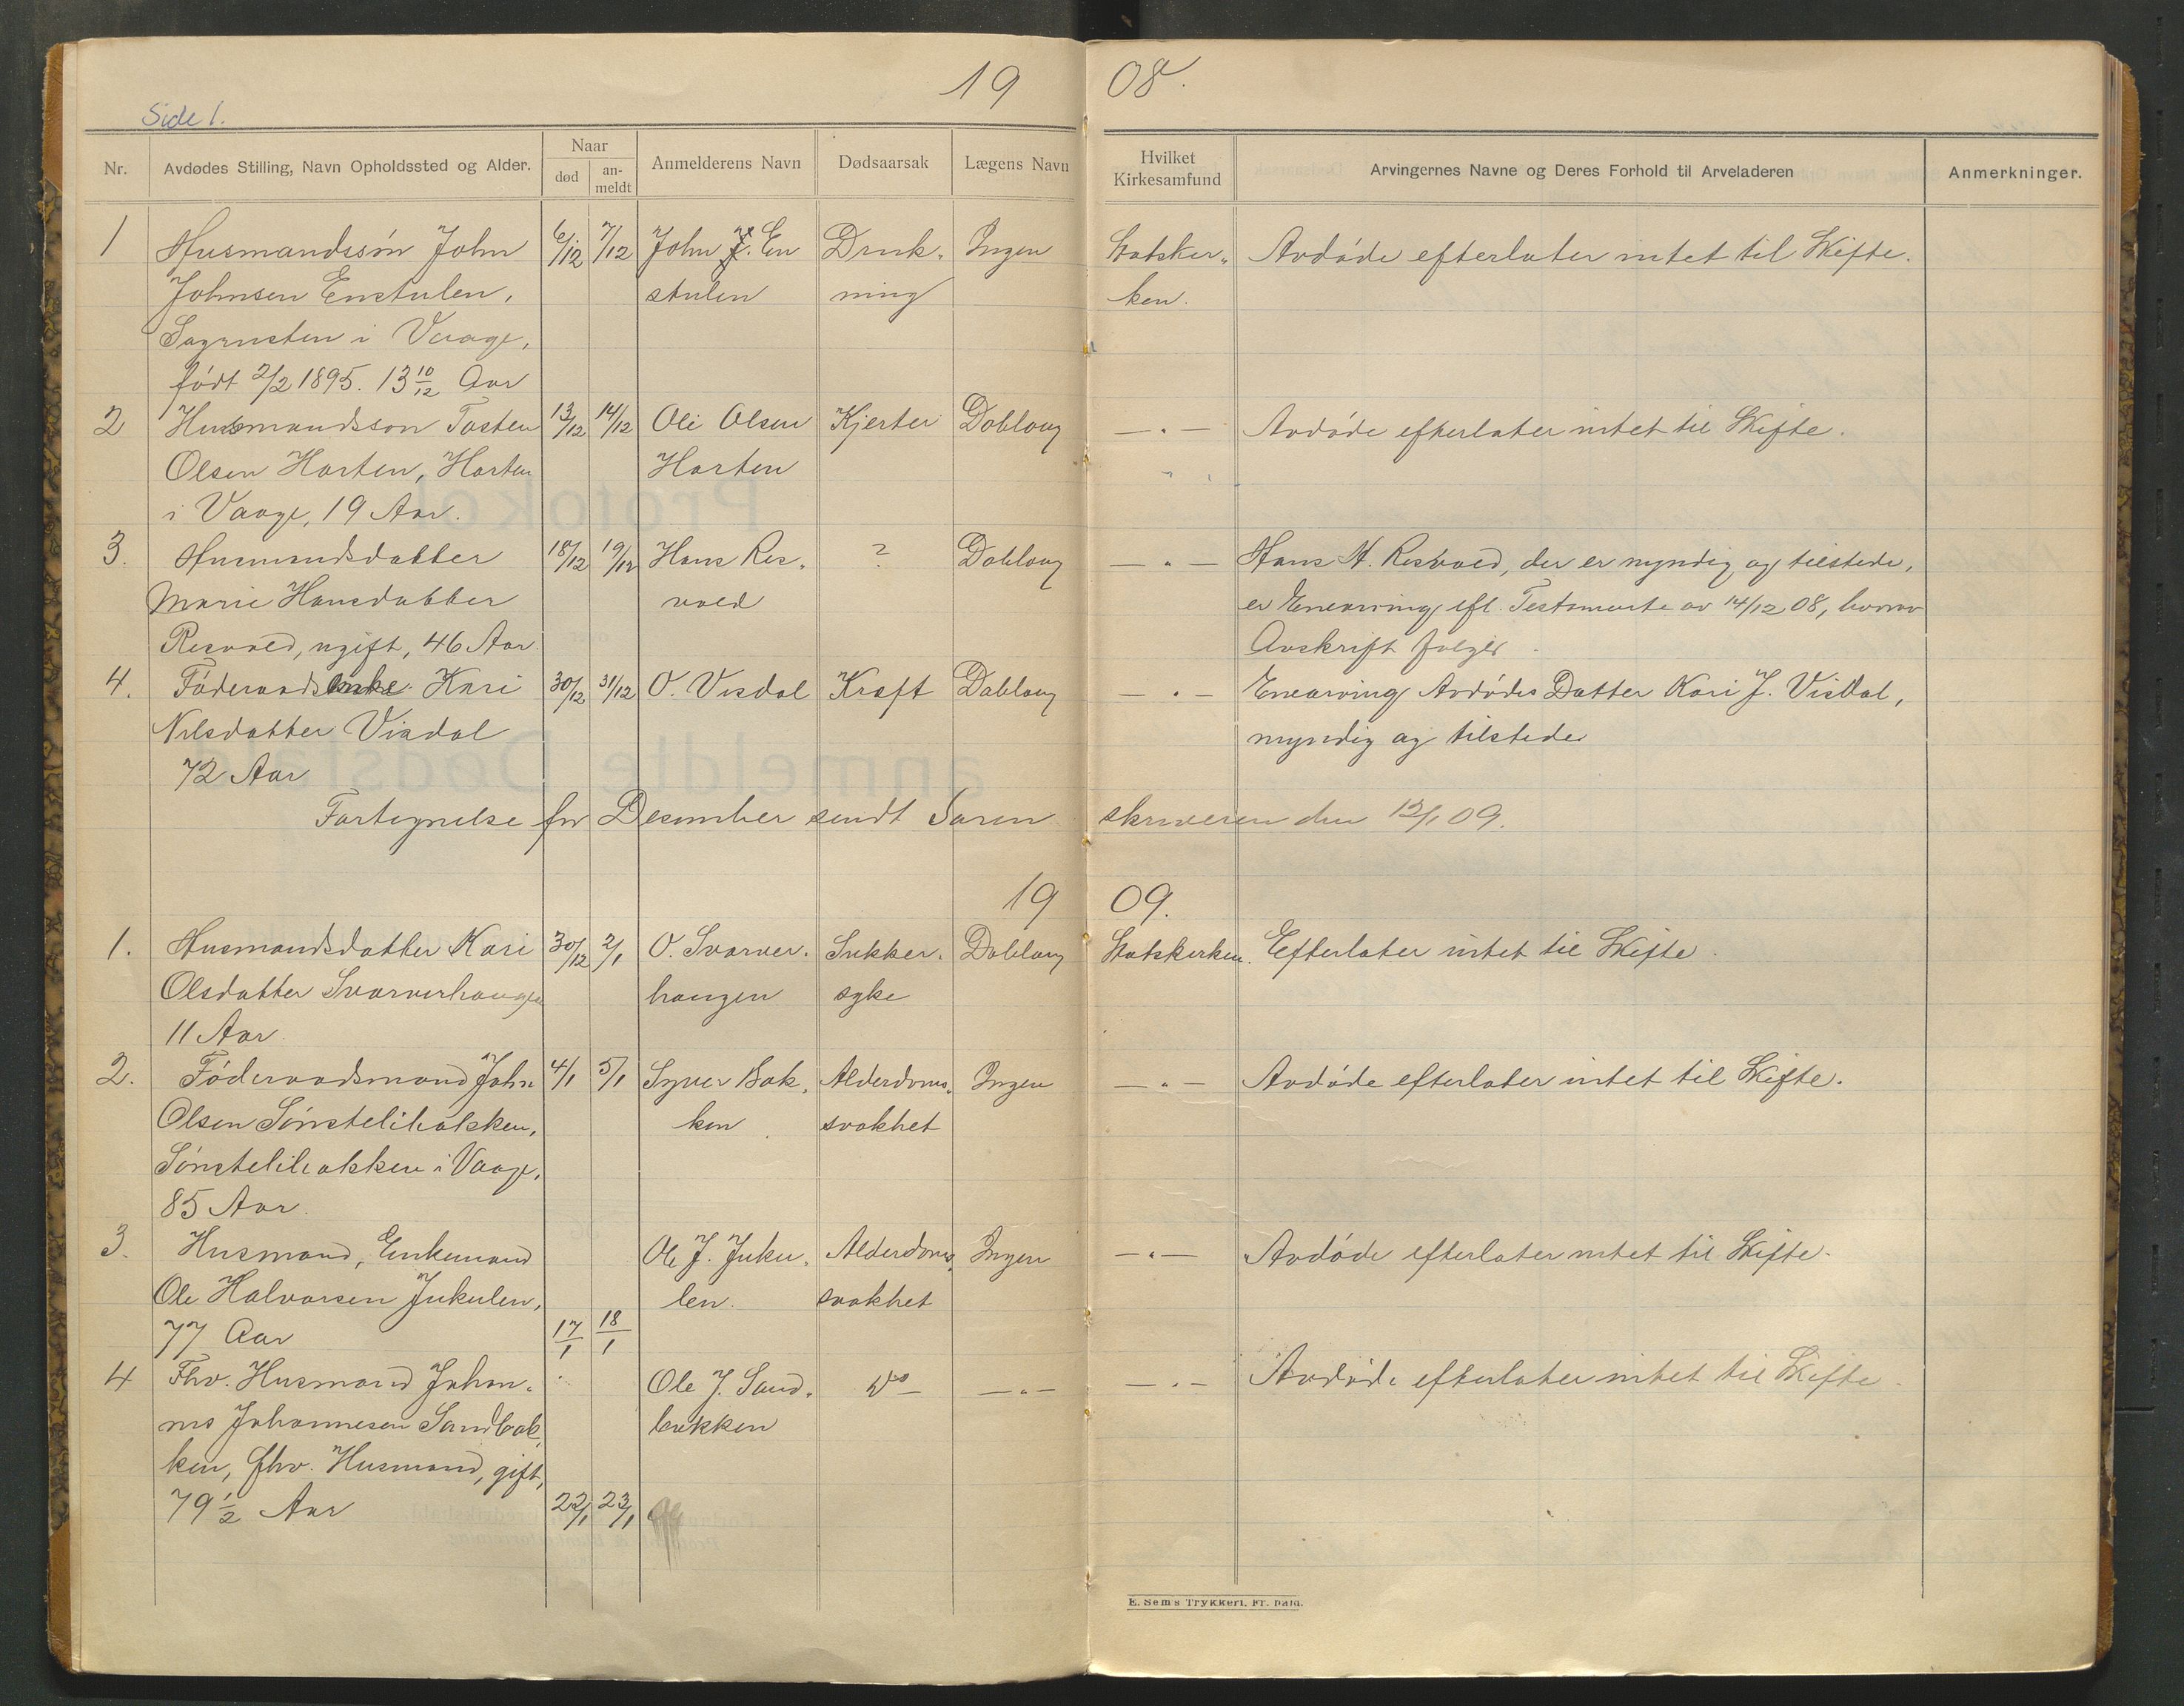 19 08.
Side 1.
Nr. Avdødes Stilling, Navn Opholdssted og Alder. Naar død an-meldt Anmelderens Navn Dødsaarsak Lægens Navn Hvilket Kirkesamfund Arvingernes Navne og Deres Forhold til Arveladeren Anmerkninger.
1 Husmandssøn John 6/12 7/12 John J. En Druk- Ingen Statskir- Avdøde efterlater intet til Skifte.
Johnsen Enstulen, stulen ning ken.
i Vaage,
født 2/2 1895. 13 10/12 Aar
2 Husmandsson Tosten 13/12 14/12 Ole Olsen Kjertel Dobloug — " — Avdøde efterlater intet til Skifte.
Olsen Harten, Harten Harten
i Vaage, 19 Aar.
3. Husmandsdatter 18/12 19/12 Hans Res- ? Dobloug — " — Hans H. Resvold, der er myndig og tilstede,
Marie Hansdatter vold er Enearving efl. Testamente av 14/12 08, hvorav
Resvold, ugift, 46 Aar. Avskrift følger.
4. Føderaadsenke Kari 30/12 31/12 O. Visdal Kræft Dobloug — " — Enearving Avdødes Datter Kari J. Visdal,
Nilsdatter Visdal myndig og tilstede
72 Aar
Fortegnelse for Desember sendt Soren skriveren den 12/1 09.
19 09.
1. Husmandsdatter Kari 30/12 2/1 O. Svarver- Sukker- Dobloug Statskirken. Efterlater intet til Skifte.
Olsdatter Svarverhaugen haugen syke
11 Aar
2. Føderaadsmand John 4/1 5/1 Syver Bak- Alderdoms- Ingen — " — Avdøde efterlater intet til Skifte.
Olsen Sønstelibakken, ken svakhet
Sønstelibakken i Vaage,
85 Aar.
3. Husmand, Enkemand Ole J. Juku- Alderdoms- Ingen — " — Avdøde efterlater intet til Skifte.
Ole Halvorsen Jukulen, len. svakhet
77 Aar 17/1 18/1
4 Fhv. Husmand Johan- Ole J. Sand- Do — " — — " — Avdøde efterlater intet til Skifte.
nes Johannesen Sandbak- bakken
ken, fhv. Husmand, gift,
79 1/2 Aar 22/1 23/1
E. Sems Trykkeri, Fr.hald.